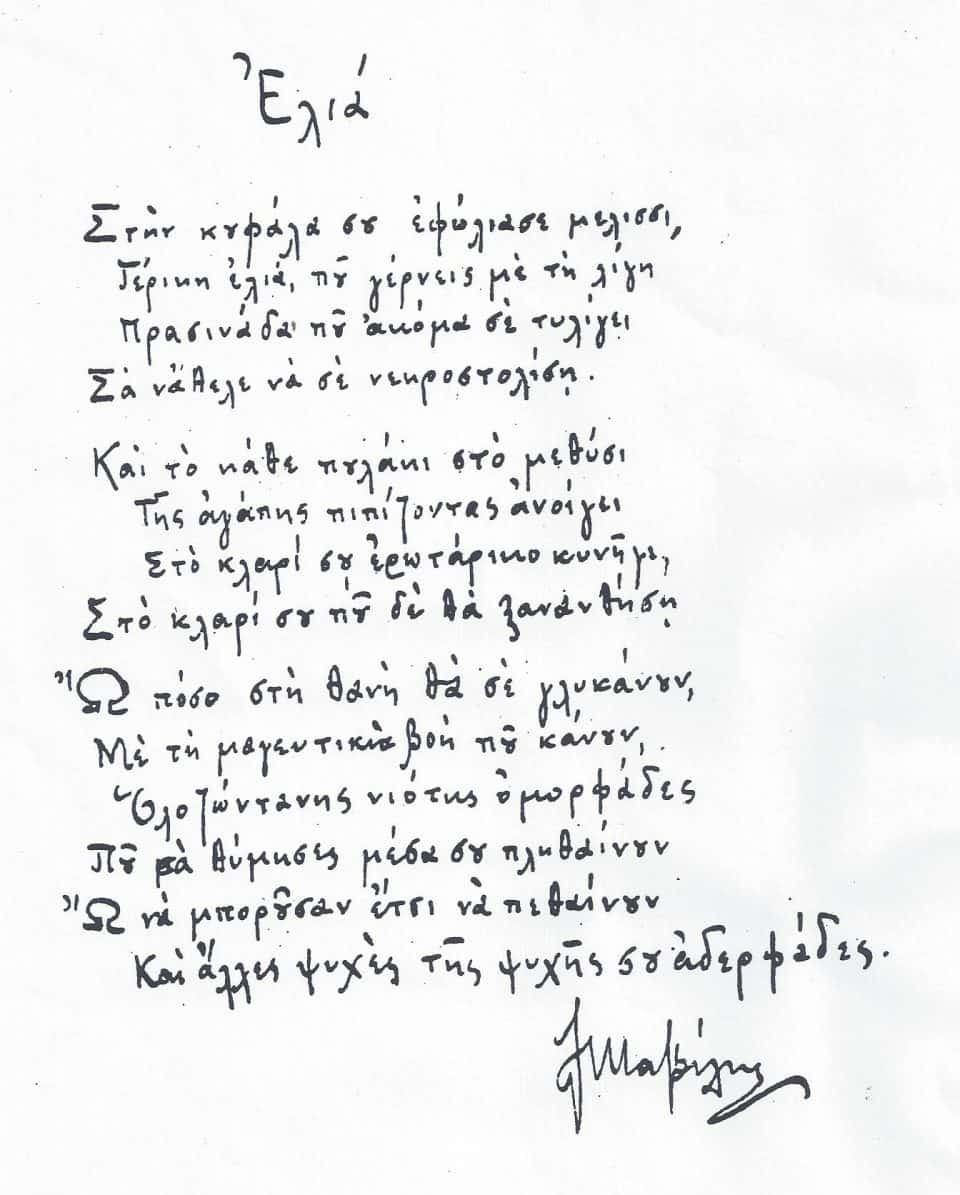 Ἐλιά
Στὴν κυφάλα σου ἐφώλιασε μελίσσι,
Γέρικη ἐλιά, ποῦ γέρνεις μὲ τὴ λίγη
Πρασινάδα ποῦ ἀκόμα σὲ τυλίγει
Σὰ νἄθελε νὰ σὲ νεκροστολίσῃ.
Καὶ τὸ κάθε πουλάκι στὸ μεθύσι
Τῆς ἀγάπης πιπίζοντας ἀνοίγει
Στὸ κλαρί σου ἐρωτάρικο κυνῆγι,
Στὸ κλαρί σου ποῦ δὲ θὰ ξανανθήσῃ
Ὢ πόσο στὴ θανὴ θὰ σὲ γλυκάνουν,
Μὲ τὴ μαγευτικιὰ βοὴ ποῦ κάνουν,
Ὁλοζώντανης νιότης ὀμορφάδες
Ποῦ σὰ θύμησες μέσα σου πληθαίνουν
Ὢ νὰ μποροῦσαν ἔτσι νὰ πεθαίνουν
Καὶ ἄλλες ψυχὲς τῆς ψυχῆς σου ἀδερφάδες.
Λ Μαβίλης